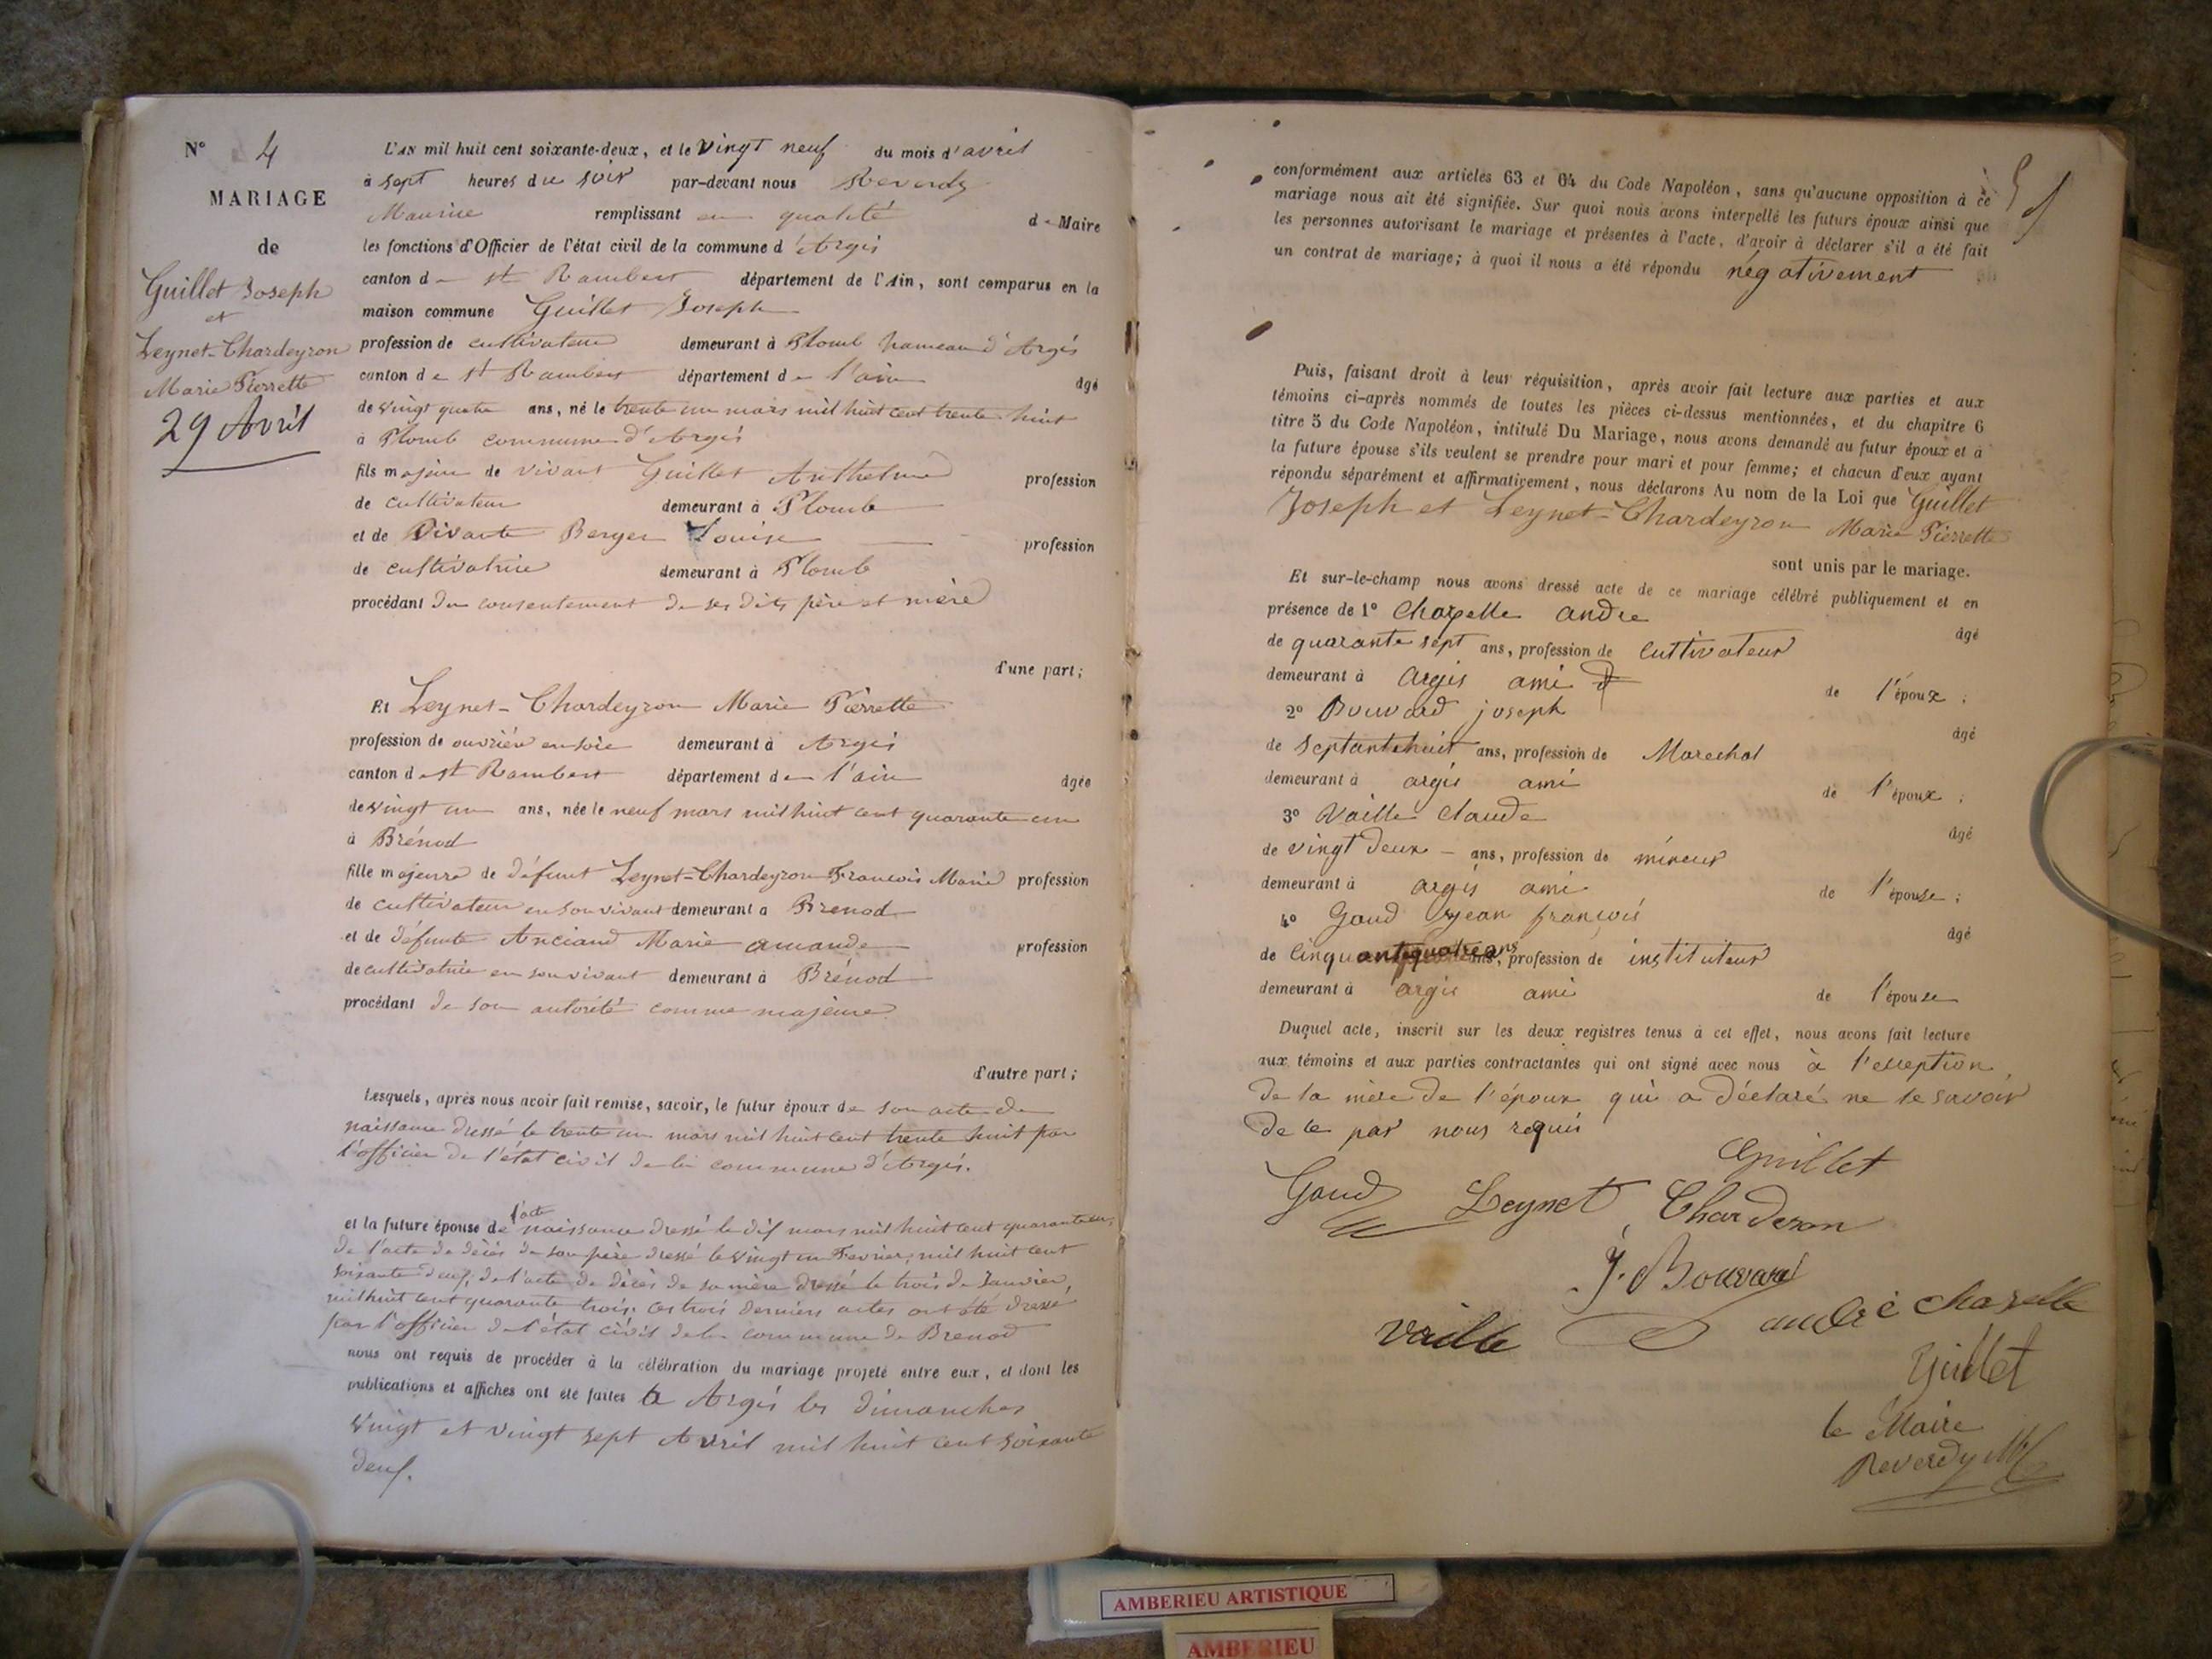 N° 4
MARIAGE
de
Guillet Joseph
et
Leynet-Chardeyron
Marie Pierrette
29 Avril
L'AN mil huit cent soixante-deux, et le vingt neuf du mois d'avril
à sept heures du soir par-devant nous Reverdy
Maurice remplissant en qualité de Maire
les fonctions d'Officier de l'état civil de la commune d'Argis
canton de st Rambert département de l'Ain, sont comparus en la
maison commune Guillet Joseph
profession de cultivateur demeurant à Plomb hameau d'Argis
canton de st Rambert département de l'ain âgé
de vingt quatre ans, né le trente un mars mil huit cent trente huit
à Plomb commune d'Argis
fils majeur de vivant Guillet Anthelme profession
de cultivateur demeurant à Plomb
et de Vivante Berger Louise profession
de cultivatrice demeurant à Plomb
procédant du consentement de ses dits père et mère
d'une part;
Et Leynet-Chardeyron Marie Pierrette
profession de ouvrière en soie demeurant à Argis
canton de st Rambert département de l'ain âgée
de vingt un ans, née le neuf mars mil huit cent quarante un
à Brénod
fille majeure de défunt Leynet-Chardeyron François Marie profession
de cultivateur en son vivant demeurant à Brenod
et de défunte Anciand Marie amande profession
de cultivatrice en son vivant demeurant à Brénod
procédant de son autorité comme majeure
d'autre part;
Lesquels, après nous avoir fait remise, savoir, le futur époux de son acte de
naissance dressé le trente un mars mil huit cent trente huit par
l'officier de l'état civil de la commune d'Argis.
et la future épouse de l'acte naissance dressé le dix mars mil huit cent quarante un,
de l'acte de décès de son père dressé le vingt un Fevrier mil huit cent
soixante deux; de l'acte de décès de sa mère dressé le trois de Janvier
mil huit cent quarante trois. ces trois derniers actes ont été dressé
par l'officier de l'état civil de la commune de Brenod
nous ont requis de procéder à la célébration du mariage projeté entre eux, et dont les
publications et affiches ont été faites à Argis les dimanches
vingt et vingt sept Avril mil huit cent soixante
deux.
conformément aux articles 63 et 64 du Code Napoléon, sans qu'aucune opposition à ce
mariage nous ait été signifiée. Sur quoi nous avons interpellé les futurs époux ainsi que
les personnes autorisant le mariage et présentes à l'acte, d'avoir à déclarer s'il a été fait
un contrat de mariage; à quoi il nous a été répondu négativement
Puis, faisant droit à leur réquisition, après avoir fait lecture aux parties et aux
témoins ci-après nommés de toutes les pièces ci-dessus mentionnées, et du chapitre 6
titre 5 du Code Napoléon, intitulé Du Mariage, nous avons demandé au futur époux et à
la future épouse s'ils veulent se prendre pour mari et pour femme; et chacun d'eux ayant
répondu séparément et affirmativement, nous déclarons Au nom de la Loi que Guillet
Joseph et Leynet-Chardeyron Marie Pierrette
sont unis par le mariage.
Et sur-le-champ nous avons dressé acte de ce mariage célébré publiquement et en
présence de 1° Chapelle andre âgé
de quarante sept ans, profession de cultivateur
demeurant à Argis ami de l'époux;
2° Bouvard joseph âgé
de septantehuit ans, profession de Marechal
demeurant à argis ami de l'époux;
3° Vaille claude âgé
de vingt deux ans, profession de mineur
demeurant à argis ami de l'épouse;
4° Goud jean françois âgé
de cinquantequatre ans, profession de instituteur
demeurant à argis ami de l'épouse
Duquel acte, inscrit sur les deux registres tenus à cet effet, nous avons fait lecture
aux témoins et aux parties contractantes qui ont signé avec nous à l'exeption
de la mère de l'époux qui a déclaré ne le savoir
de ce par nous requis
Guillet
Goud Leynet Charderon
J. Bouvard
Vaille andré chapelle
Guillet
le Maire
Reverdy M
AMBERIEU ARTISTIQUE
AMBERIEU